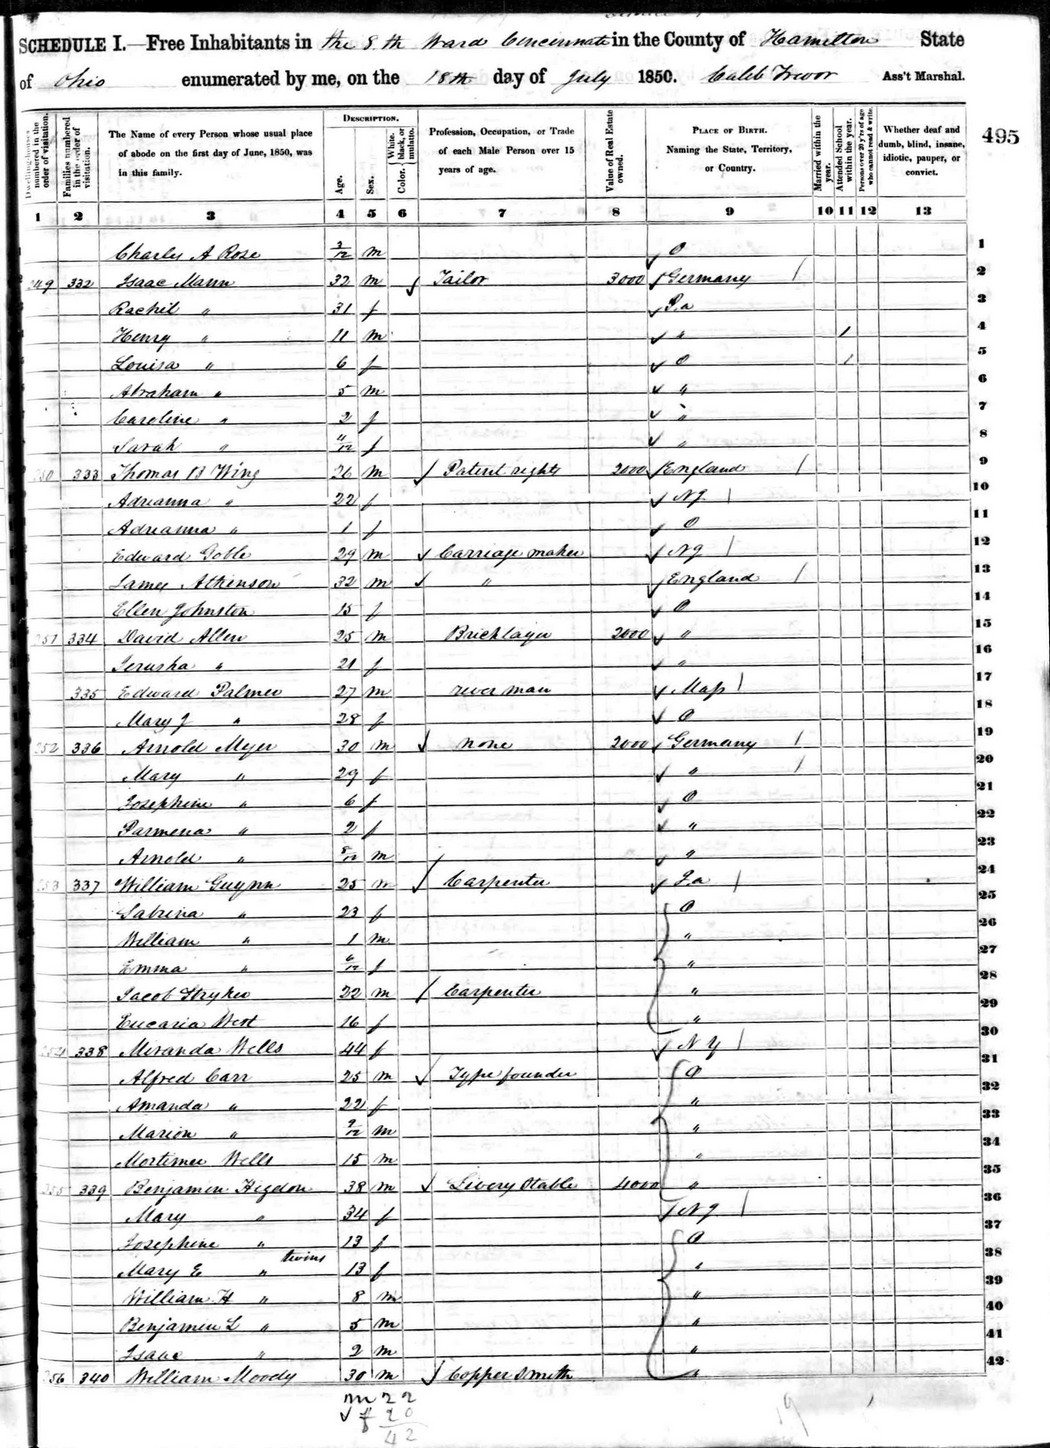 SCHEDULE I.—Free Inhabitants in the 8th Ward Cincinnati in the County of Hamilton State
of Ohio enumerated by me, on the 18th day of July 1850. Caleb Trevor Ass't Marshal.
495
Dwelling-houses numbered in the order of visitation.
Families numbered in the order of visitation.
The Name of every Person whose usual place of abode on the first day of June, 1850, was in this family.
DESCRIPTION.
Age.
Sex.
Color, White, black, or mulatto.
Profession, Occupation, or Trade of each Male Person over 15 years of age.
Value of Real Estate owned.
PLACE OF BIRTH. Naming the State, Territory, or Country.
Married within the year.
Attended School within the year.
Persons over 20 y'rs of age who cannot read & write.
Whether deaf and dumb, blind, insane, idiotic, pauper, or convict.
1 2 3 4 5 6 7 8 9 10 11 12 13
Charles A Rose 3/12 m O 1
249 332 Isaac Mann 32 m Tailor 3000 Germany 2
Rachel " 31 f Pa 3
Henry " 11 m " 1 4
Louisa " 6 f O 1 5
Abraham " 5 m " 6
Caroline " 2 f " 7
Sarah " f " 8
250 333 Thomas B Wing 26 m Patent rights 2000 England 9
Adrianna " 22 f NJ 10
Adrianna " 1 f O 11
Edward Goble 29 m Carriage maker NJ 12
James Atkinson 32 m " England 13
Ellen Johnston 15 f O 14
251 334 David Allen 25 m Bricklayer 2000 " 15
Jerusha " 21 f " 16
335 Edward Palmer 27 m river man Mass 17
Mary J " 28 f O 18
252 336 Arnold Myer 30 m none 2000 Germany 19
Mary " 29 f " 20
Josephine " 6 f O 21
Parmena " 2 f " 22
Arnold " 8/12 m " 23
253 337 William Guynn 25 m Carpenter Pa 24
Sabrina " 23 f O 25
William " 1 m " 26
Emma " f " 27
Jacob Stryker 22 m Carpenter " 28
Eucaria West 16 f " 29
254 338 Miranda Wells 44 f N Y 30
Alfred Carr 25 m Type founder O 31
Amanda " 22 f " 32
Marion " 9/12 m " 33
Mortimer Wells 15 m " 34
255 339 Benjamin Higdon 38 m Livery Stable 4000 " 35
Mary " 34 f NJ 36
Josephine " 13 f O 37
twins
Mary E " 13 f " 38
William H " 8 m " 39
Benjamin L " 5 m " 40
Isaac " 2 m " 41
256 340 William Moody 30 m Copper Smith " 42
m 22
f 20
42
19